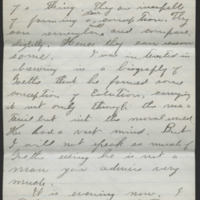 of a thing. They are incapable
of forming a conception. They
can remember and compare
slightly. Hence they can reason
some. I was interested in
observing in a biography of
Goethe that he formed the
conception of Evolution, carrying
it not only through the ma-
terial but into the moral world.
He had a vast mind. But
I would not speak so much of
Goethe seeing he is not a
man you admire very
much.
It is evening now. I